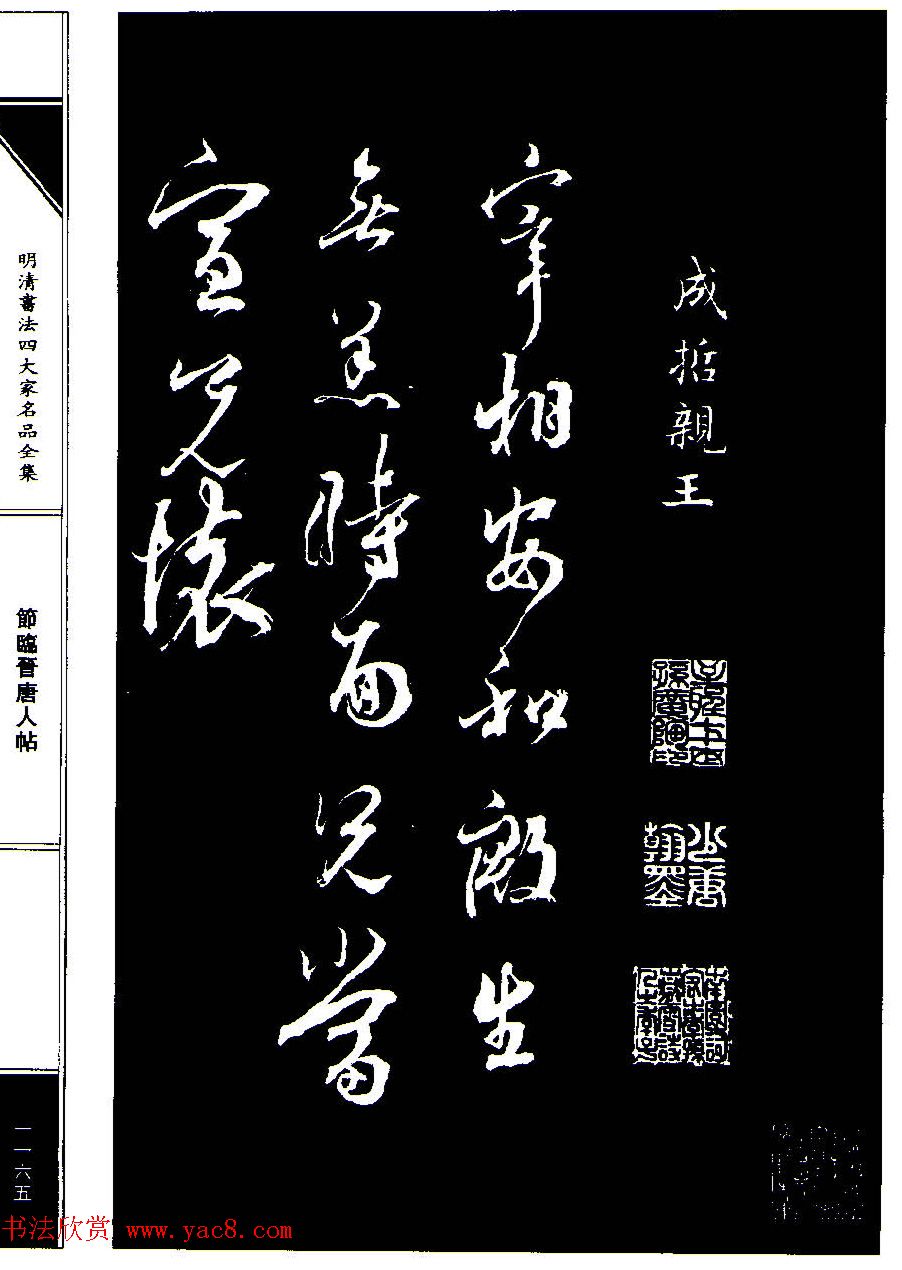 成哲親王
少唐翰墨
宰相安和殷生
無恙時面兄當
宣兄懷
明清書法四大家名品全集
節臨晉唐人帖
一一六五
书法欣赏 www.yac8.com